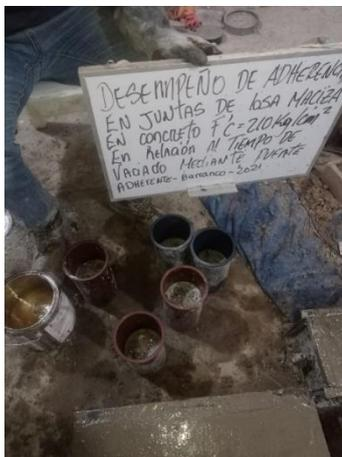 DESEMPEÑO DE ADHERENCIA
EN JUNTAS DE LOSA MACIZA
EN CONCRETO F'C=210Kg/cm²
En Relación Al TIEMPO DE
VACIADO MEDIANTE PUENTE
ADHERENTE-Barranco-2021.